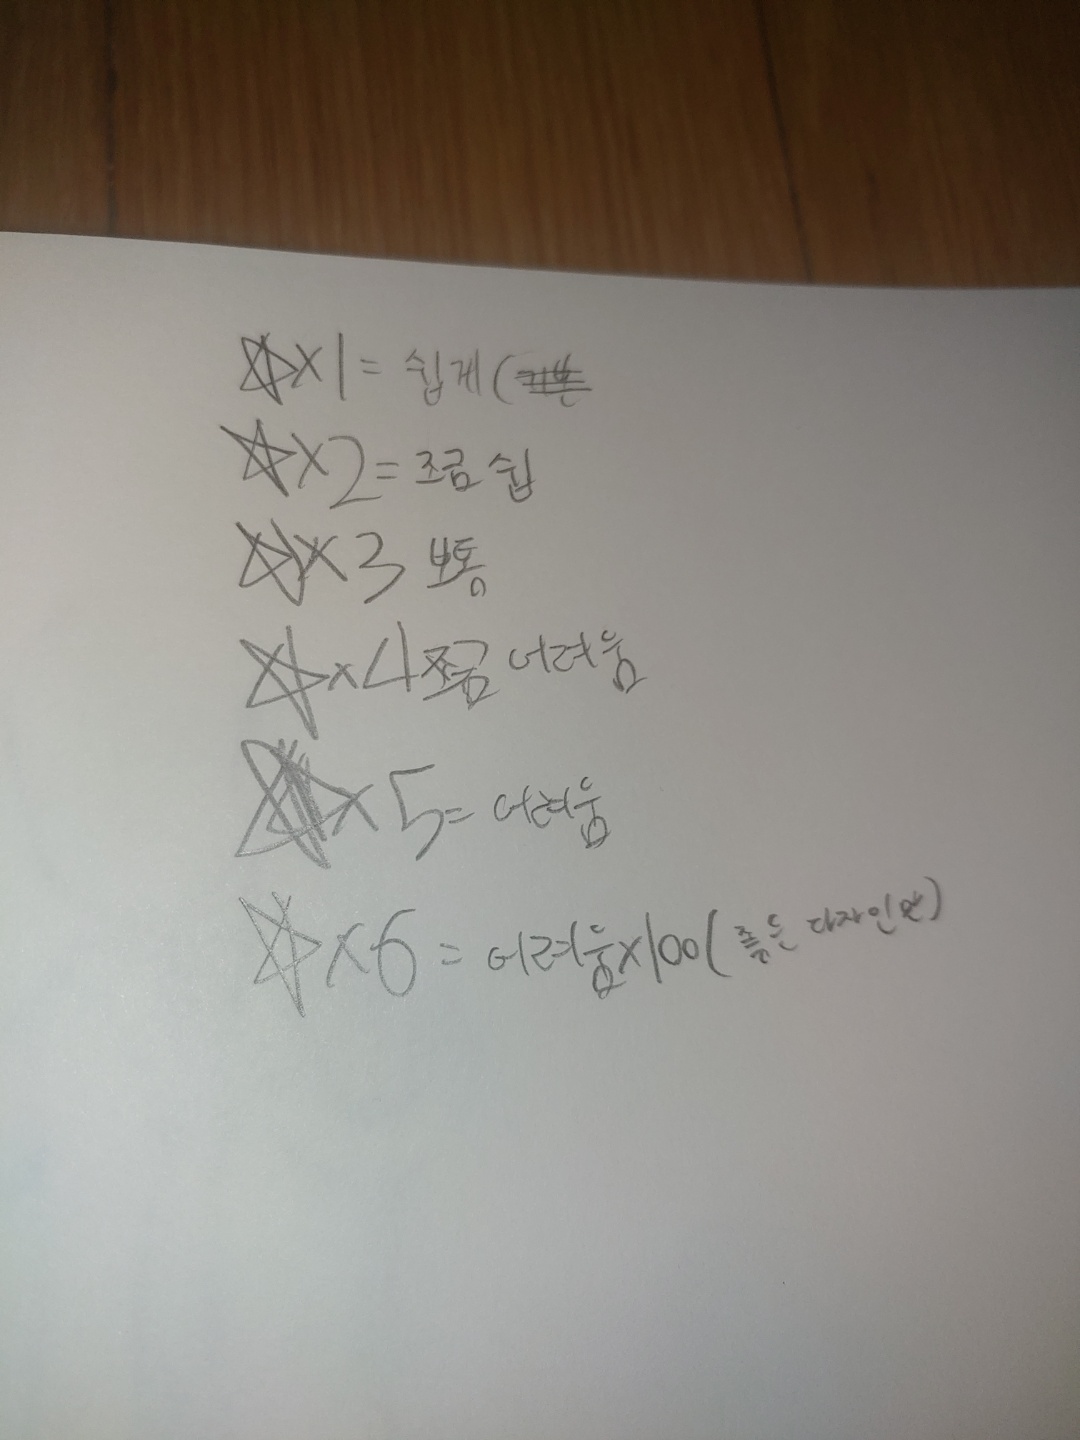 ☆×1= 쉽게(
☆×2= 조금 쉽
☆×3 보통
☆×4 쪼금 어려움
☆×5= 어려움
☆×6 = 어려움×100(